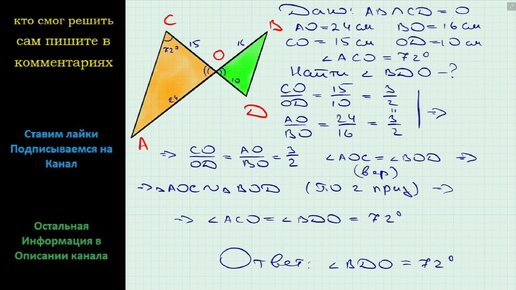 кто смог решить
сам пишите в
комментариях
Ставим лайки
Подписываемся на
Канал
Остальная
Информация в
Описании канала
C
B
15
16
72°
O
10
24
D
A
Дано: AB∩CD = O
AO = 24 см BO = 16 см
CO = 15 см OD = 10 см
∠ACO = 72°
Найти ∠BDO - ?
CO/OD = 15/10 = 3/2
AO/BO = 24/16 = 3/2
=> CO/OD = AO/BO = 3/2 ∠AOC = ∠BOD =>
(вер)
=> △AOC ~ △BOD (по 2 призн) =>
=> ∠ACO = ∠BDO = 72°
Ответ: ∠BDO = 72°